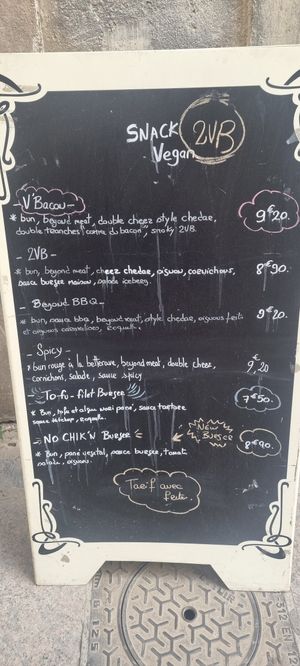 SNACK 2VB
Vegan
- V'Bacon - 9€20
* bun, beyond meat, double cheez style chedar,
double tranches "comme du bacon", smoky 2VB.
- 2VB -
* bun, beyond meat, cheez chedar, oignon, cornichons, 8€90.
sauce burger maison, salade iceberg.
- Beyond BBQ -
* bun, sauce bbq, beyond meat, style chedar, oignons frits 9€20.
et oignons caramélisés, roquette.
- Spicy -
* bun rouge à la betterave, beyond meat, double cheez, 9,20 €
cornichons, salade, sauce spicy
To-fu-filet Burger 7€50.
* Bun, tofu et algue nori pané, sauce tartare
sauce ketchup, roquette.
NO CHIK'N Burger New Burger 8€90.
* Bun, pané végétal, sauce burger, tomate
salade, oignons.
Tarif avec
frites.